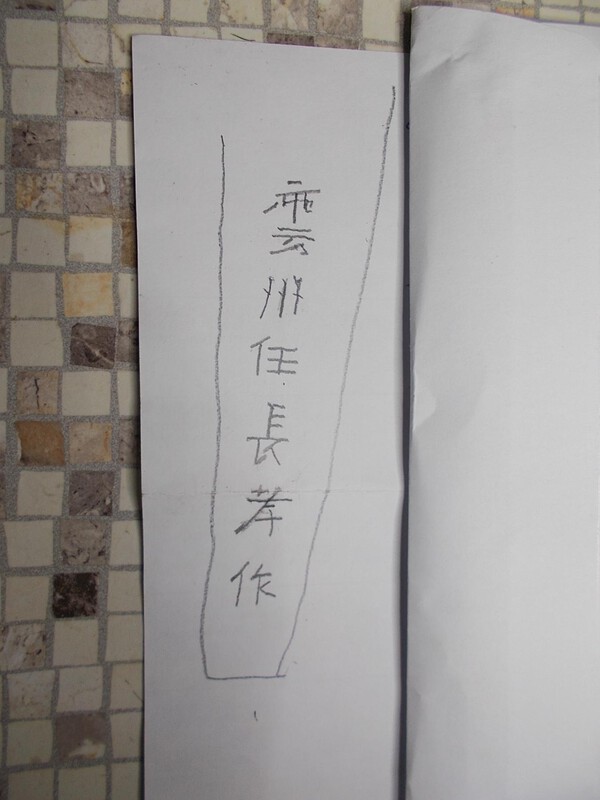 雲州住長孝作